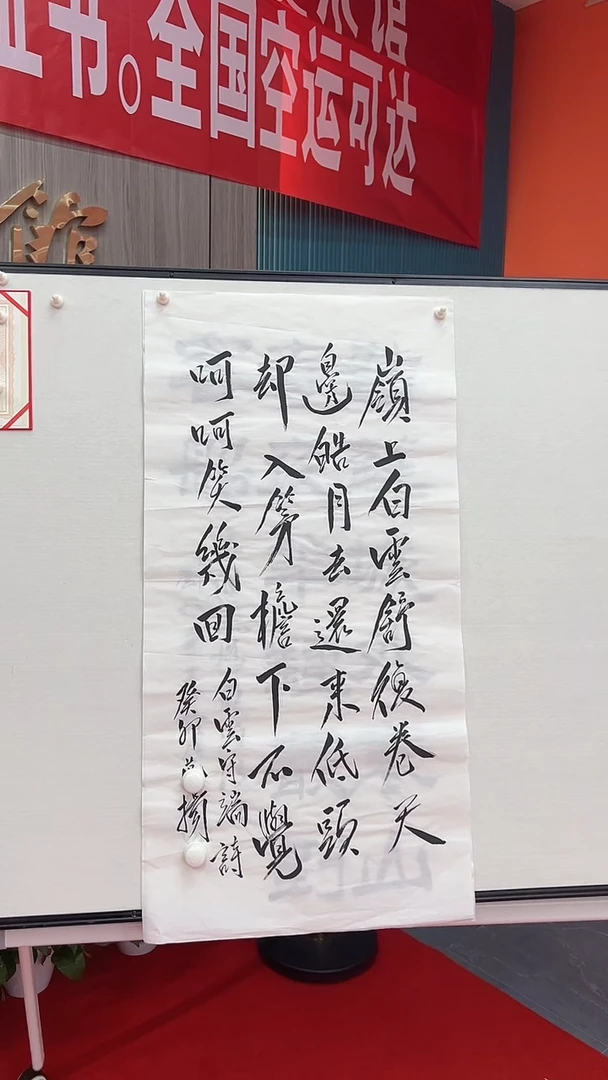 术馆
证书。全国空运可达
館
嶺上白雲舒復卷天
邊皓月去還來低頭
却入茅檐下不覺
呵呵笑幾回
白雲守端詩
癸卯